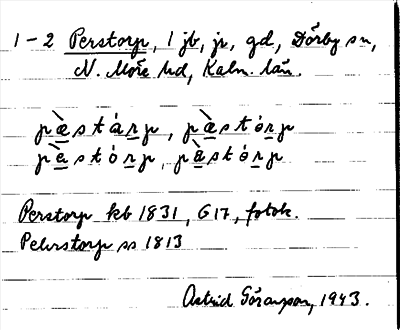 1–2 Perstorp, 1 jb, jr, gd, Dörby sn,
N. Möre hd, Kalm. län.
pæ̀stárp, pæ̀stórp
pæ̀stórp, pæ̀stórp
Perstorp kb 1831, G17, fotok.
Pehrstorp ss 1813
Astrid Göransson, 1943.